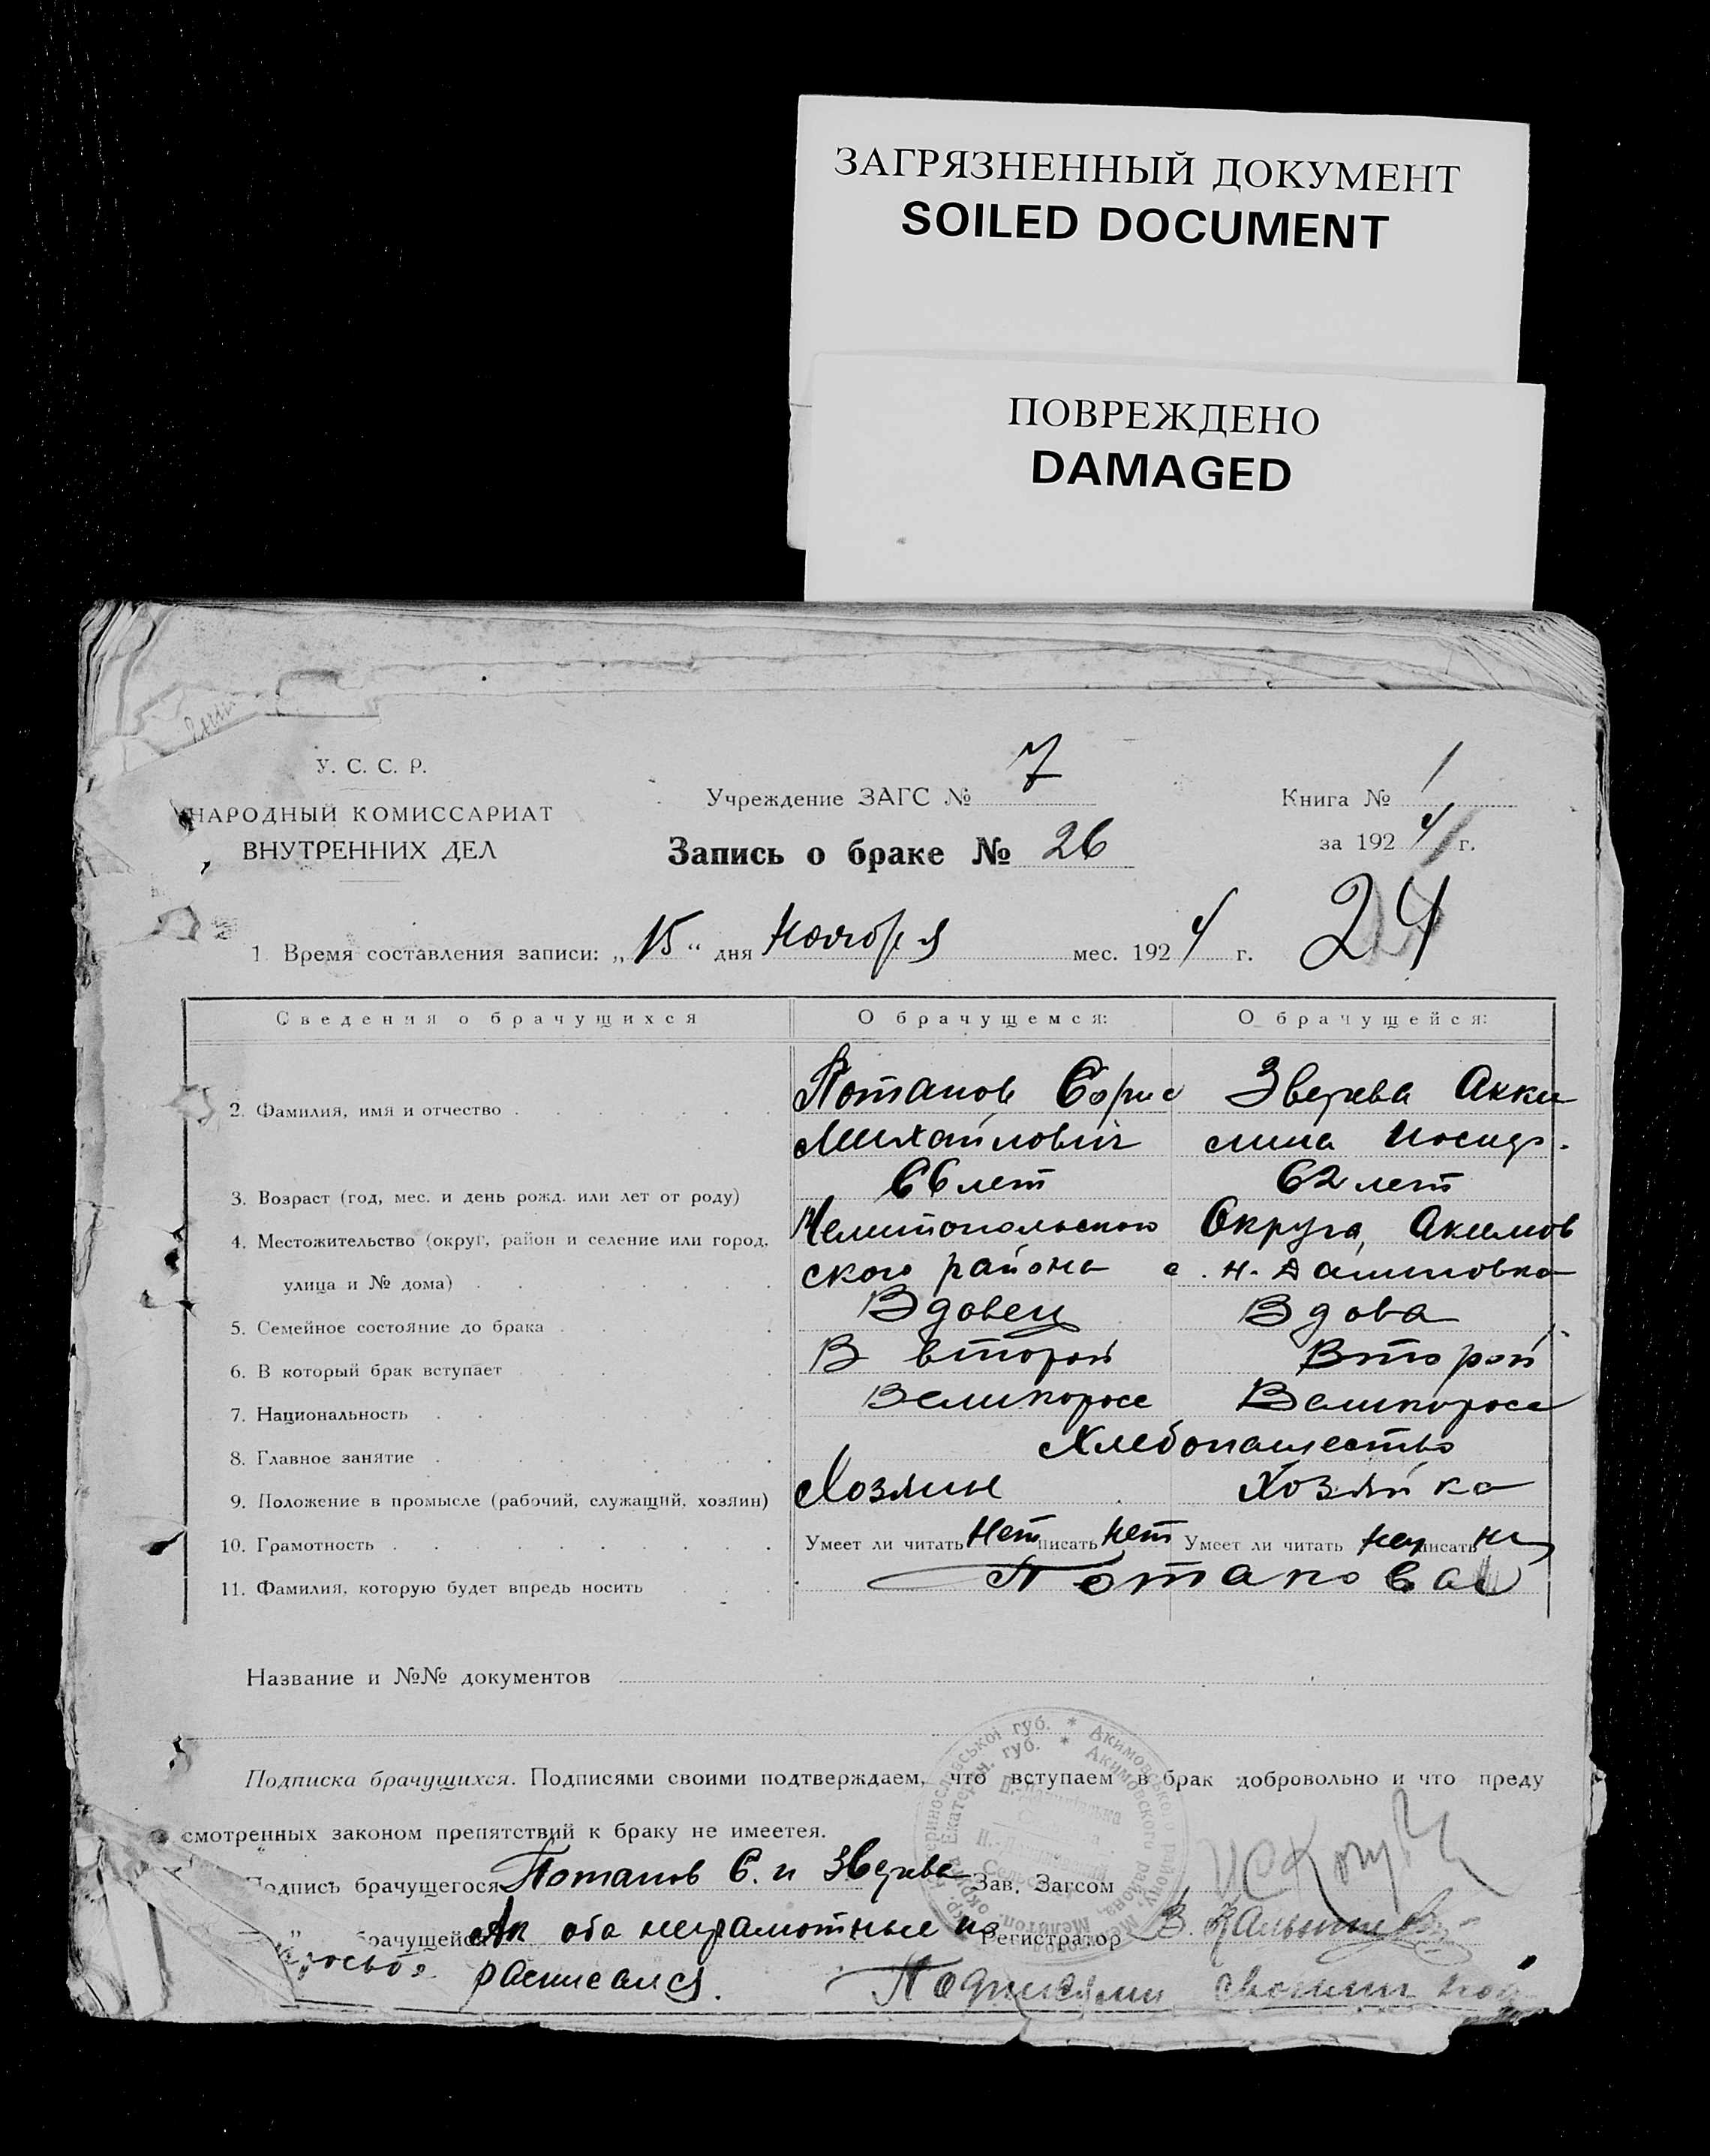 ЗАГРЯЗНЕННЫЙ ДОКУМЕНТ
SOILED DOCUMENT
ПОВРЕЖДЕНО
DAMAGED
У. С. С. Р.
НАРОДНЫЙ КОМИССАРИАТ
ВНУТРЕННИХ ДЕЛ
Учреждение ЗАГС № 7
Запись о браке № 26
Книга № 1
за 1924 г.
24
1. Время составления записи: „15" дня Ноября мес. 1924 г.
Сведения о брачущихся О брачущемся: О брачущейся:
2. Фамилия, имя и отчество Потапов Борис Зверева Акки
Михайлович лина
3. Возраст (год, мес. и день рожд. или лет от роду) 66 лет 62 лет
4. Местожительство (округ, район и селение или город, Мелитопольского Округа, Акимов
улица и № дома) ского района с. Н. Даниловка
5. Семейное состояние до брака Вдовец Вдова
6. В который брак вступает В второй Второй
7. Национальность Великоросс Великоросс
8. Главное занятие Хлебопашество
9. Положение в промысле (рабочий, служащий, хозяин) Хозяин Хозяйка
10. Грамотность Умеет ли читать Нет писать Нет Умеет ли читать писать
11. Фамилия, которую будет впредь носить Потапова
Название и №№ документов
Подписка брачущихся. Подписями своими подтверждаем, что вступаем в брак добровольно и что преду
смотренных законом препятствий к браку не имеется.
Подпись брачущегося Потапов Б. и Зверева Зав. Загсом
„ брачущейся Ак оба неграмотные их Регистратор
росьбе расписался. Подписями своими